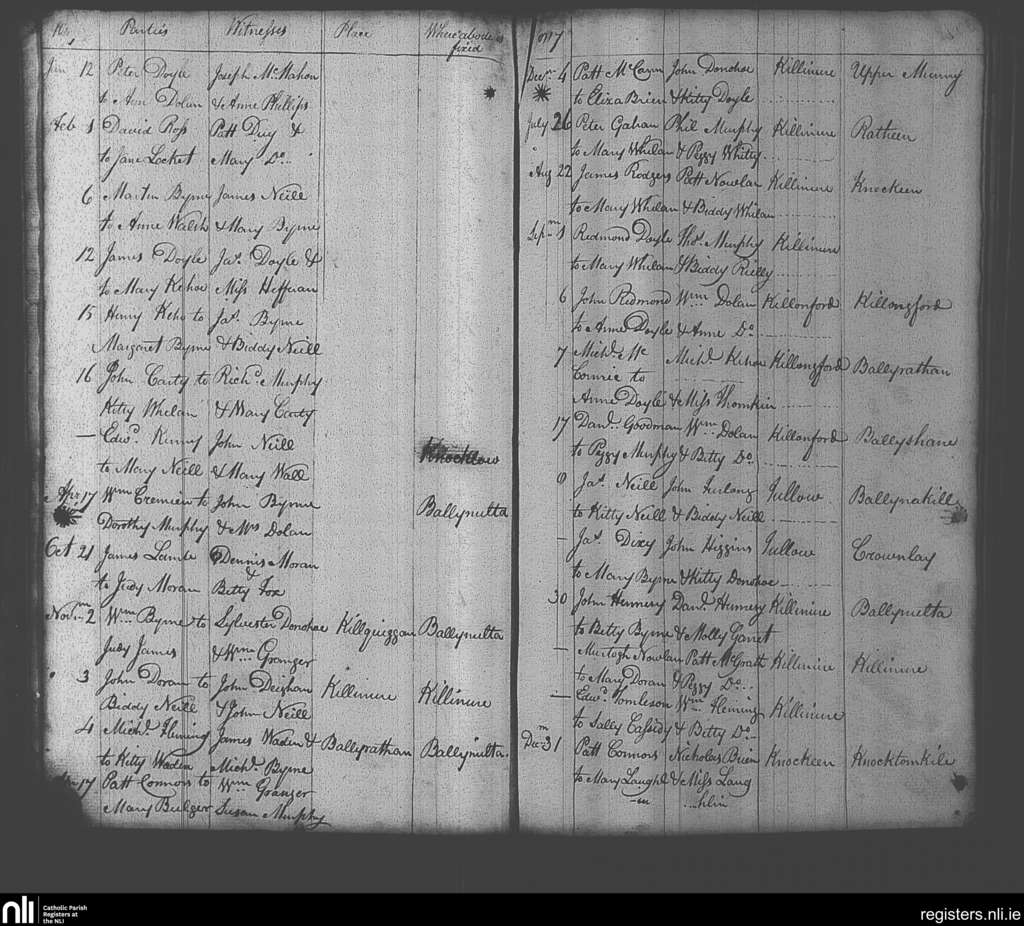 Parties Witnesses Place Where abode is fixed
Jan 12 Peter Doyle Joseph McMahon
to Ann Dolan & Anne Phillips
Feb 1 David Ross Patt &
to Jane Locket Mary Do
6 Martin Byrne James Neill
to Anne Walsh & Mary Byrne
12 James Doyle Jas. Doyle &
to Mary Kehoe Miss Heffernan
15 Henry Keho to Jas. Byrne
Margaret Byrne & Biddy Neill
16 John Carty to Richd. Murphy
Kitty Whelan & Mary Carty
— Edwd. Kinny John Neill
to Mary Neill & Mary Wall Knocklow
Apr 17 Wm to John Byrne
Dorothy Murphy & Mrs Dolan Ballynulta
Oct 21 James Lambe Dennis Moran
&
to Judy Moran Betty Fox
Novm 2 Wm Byrne to Sylvester Donohoe Killquiggan Ballynulta
Judy James & Wm Granger
3 John Doran to John Deigham Killinure Killinure
Biddy Neill & John Neill
4 Michl. Fleming James Waden & Ballyrathan Ballynulta.
to Kitty Waden Michl. Byrne
17 Patt Connors to Wm Granger
Mary Bulger Susan Murphy
Decm 4 Patt McCann John Donohoe Killinure Upper Munny
to Eliza Brien & Kitty Doyle
July 26 Peter Gahan Phil Murphy Killinure Ratheen
to Mary Whelan & Peggy Whitty
Aug 22 James Rodgers Patt Nowlan Killinure Knockeen
to Mary Whelan & Biddy Whelan
Sepm 1 Redmond Doyle Thos. Murphy Killinure
to Mary Whelan & Biddy Rielly
6 John Redmond Wm Dolan Killonford Killongford
to Anne Doyle & Anne Do
7 Michl. Mc Michl. Kehoe Killongford Ballyrathan
to
Anne Doyle & Miss Thomkin
17 Danl. Goodman Wm Dolan Killonford Ballyshane
to Peggy Murphy & Betty Do
Jas. Neill John Furlong Tullow Ballynakill
to Kitty Neill & Biddy Neill
— Jas. Dixy John Higgins Tullow Crownlay
to Mary Byrne & Kitty Donohoe
30 John Hennery Danl. Hennery Killinure Ballynulta
to Betty Byrne & Molly Garret
— Murtogh Nowlan Patt McGrath Killinure Killinure
to Mary Doran & Peggy Do
— Edwd. Tomleson Wm Fleming Killinure
to Sally Cassidy & Betty Do
Decm 31 Patt Connors Nicholas Brien Knockeen Knocktomkile
to Mary Laughl & Miss Laug
-in hlin
nli Catholic Parish
Registers at
the NLI
registers.nli.ie